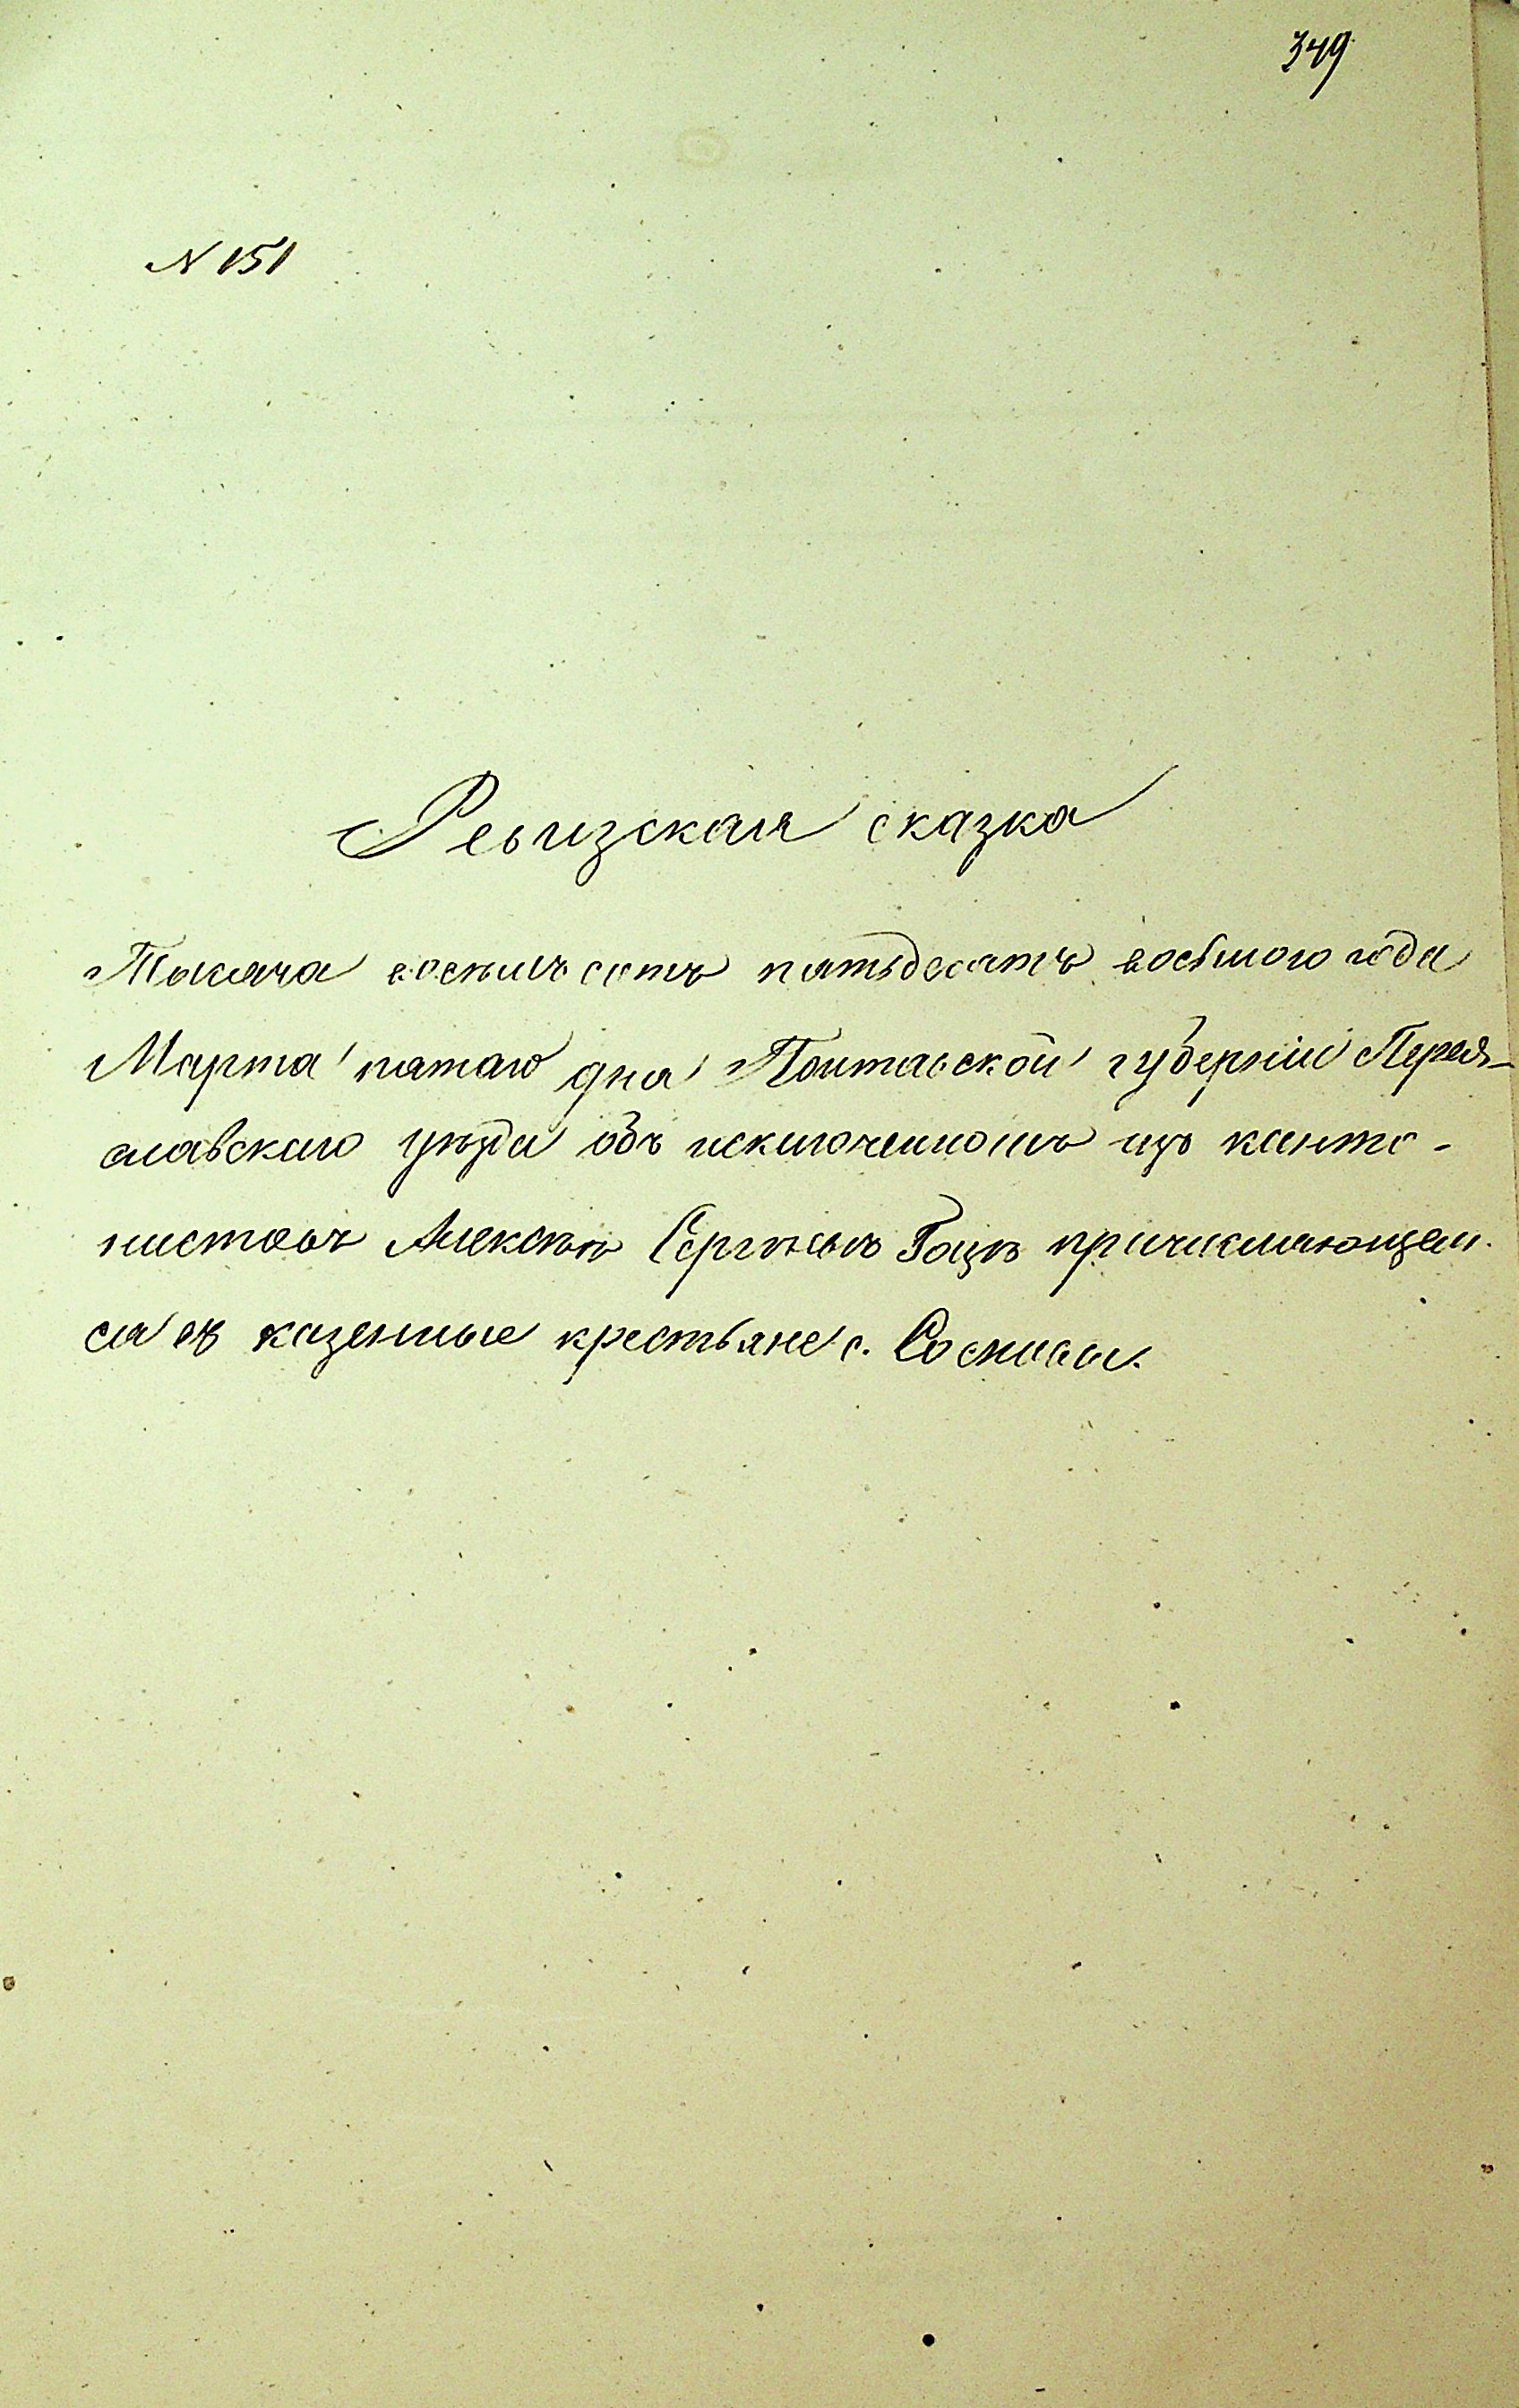 349
N 151
Ревизская сказка
Тысяча восемь сотъ пятьдесятъ восьмого года
Марта пятаго дня Полтавской губерніи Перея-
славскаго уѣзда объ исключенномъ изъ канто-
нистовъ Алексѣѣ Сергѣевѣ Гоцѣ причисляющем
ся въ казенные крестьяне с. Сосновы.